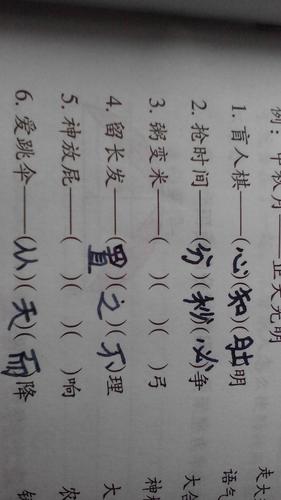 例：中秋月——正大光明
1. 盲人棋——(心)(知)(肚)明
2. 抢时间——(分)(秒)(必)争
3. 粥变米——( )( )( )弓
4. 留长发——(置)(之)(不)理
5. 神放屁——( )( )( )响
6. 爱跳伞——(从)(天)(而)降
走大
语气
大合
神
大
农